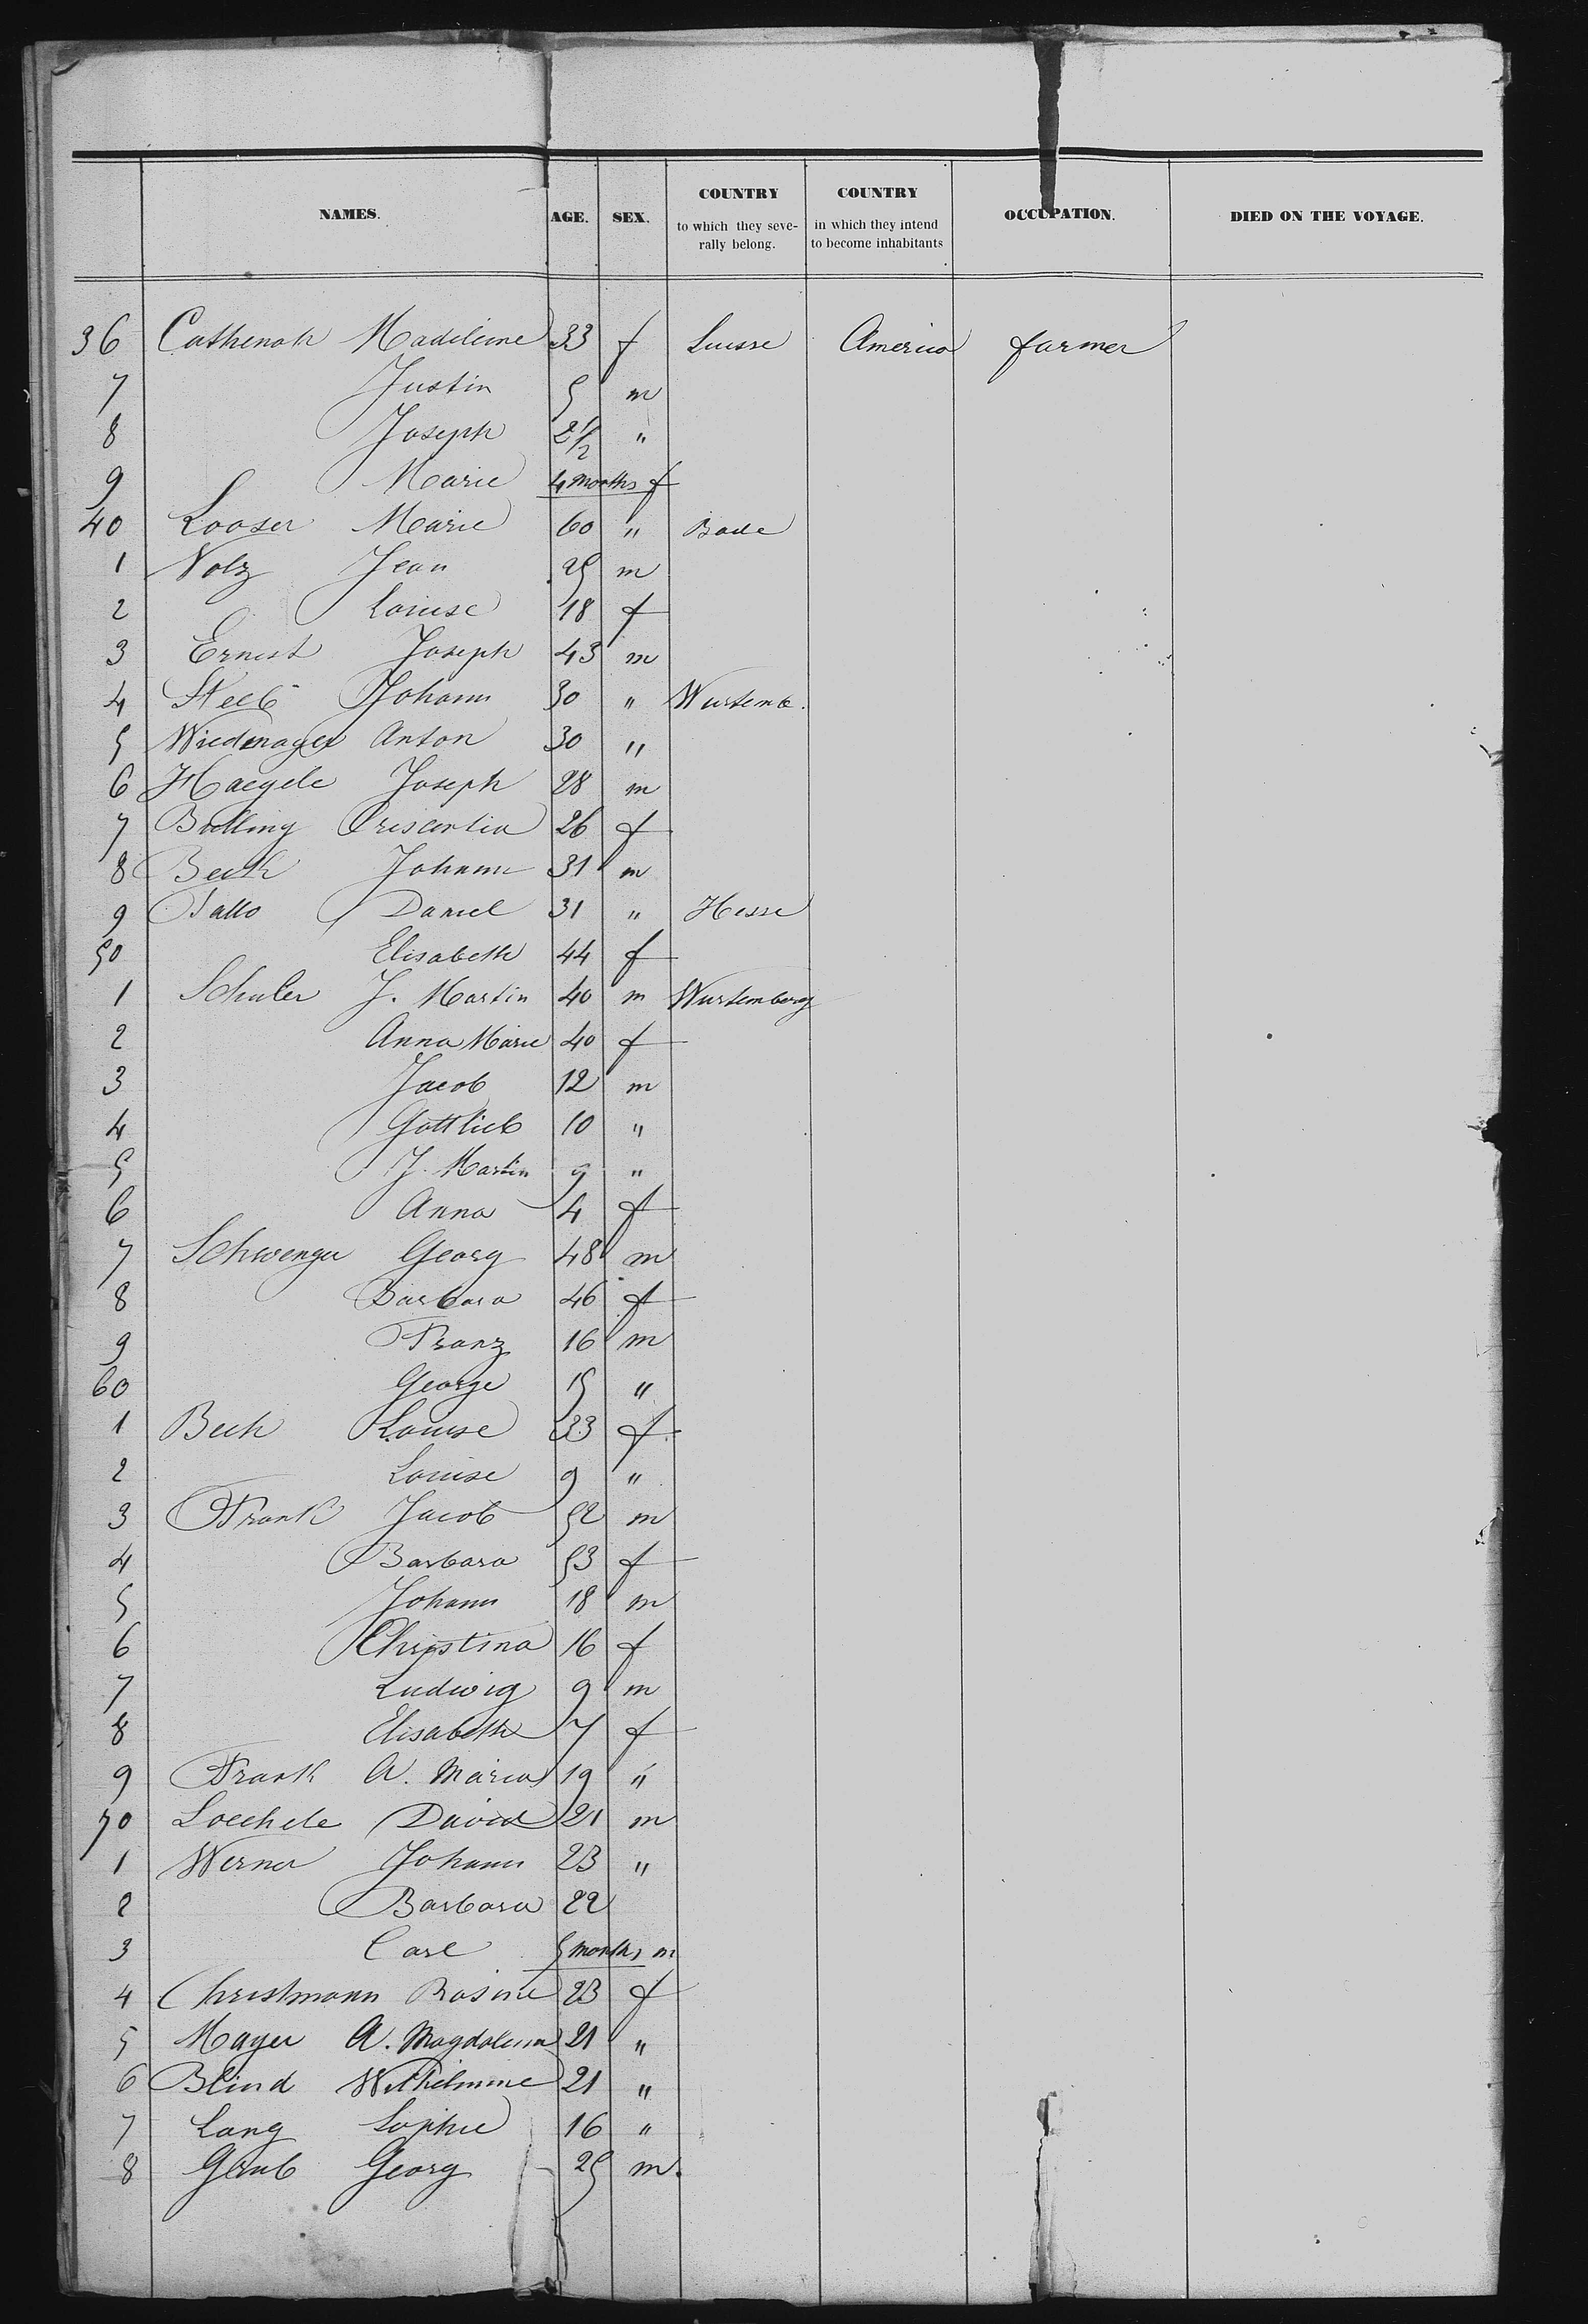 NAMES. AGE. SEX. COUNTRY to which they seve- rally belong. COUNTRY in which they intend to become inhabitants OCCUPATION. DIED ON THE VOYAGE.
36 Cathenoh Madeleine 33 f Suisse America farmer
7 Justin 5 m
8 Joseph 2 1/2 "
9 Marie 4 months f
40 Looser Marie 60 " Bade
1 Volz Jean 25 m
2 Louise 18 f
3 Ernest Joseph 43 m
4 Steeb Johann 30 " Wurtemb.
5 Wiedmayer Anton 30 "
6 Haegele Joseph 28 m
7 Bolling Criscentia 26 f
8 Beck Johann 31 m
9 Daniel 31 " Hesse
50 Elisabeth 44 f
1 Schuler J. Martin 40 m Wurtemberg
2 Anna Marie 40 f
3 Jacob 12 m
4 Gottlieb 10 "
5 J. Martin 9 "
6 Anna 4 f
7 Schwenger Georg 48 m
8 Barbara 46 f
9 Franz 16 m
60 George 15 "
1 Beck Louise 33 f
2 Louise 9 "
3 Frank Jacob 52 m
4 Barbara 53 f
5 Johann 18 m
6 Christina 16 f
7 Ludwig 9 m
8 Elisabeth 7 f
9 Frank A. Maria 19 "
70 Loechele David 21 m
1 Werner Johann 23 "
2 Barbara 22
3 Carl 5 months m
4 Christmann Rosine 23 f
5 Mayer A. Magdalena 21 "
6 Blind Wilhelmine 21 "
7 Lang Sophie 16 "
8 Georg 25 m.